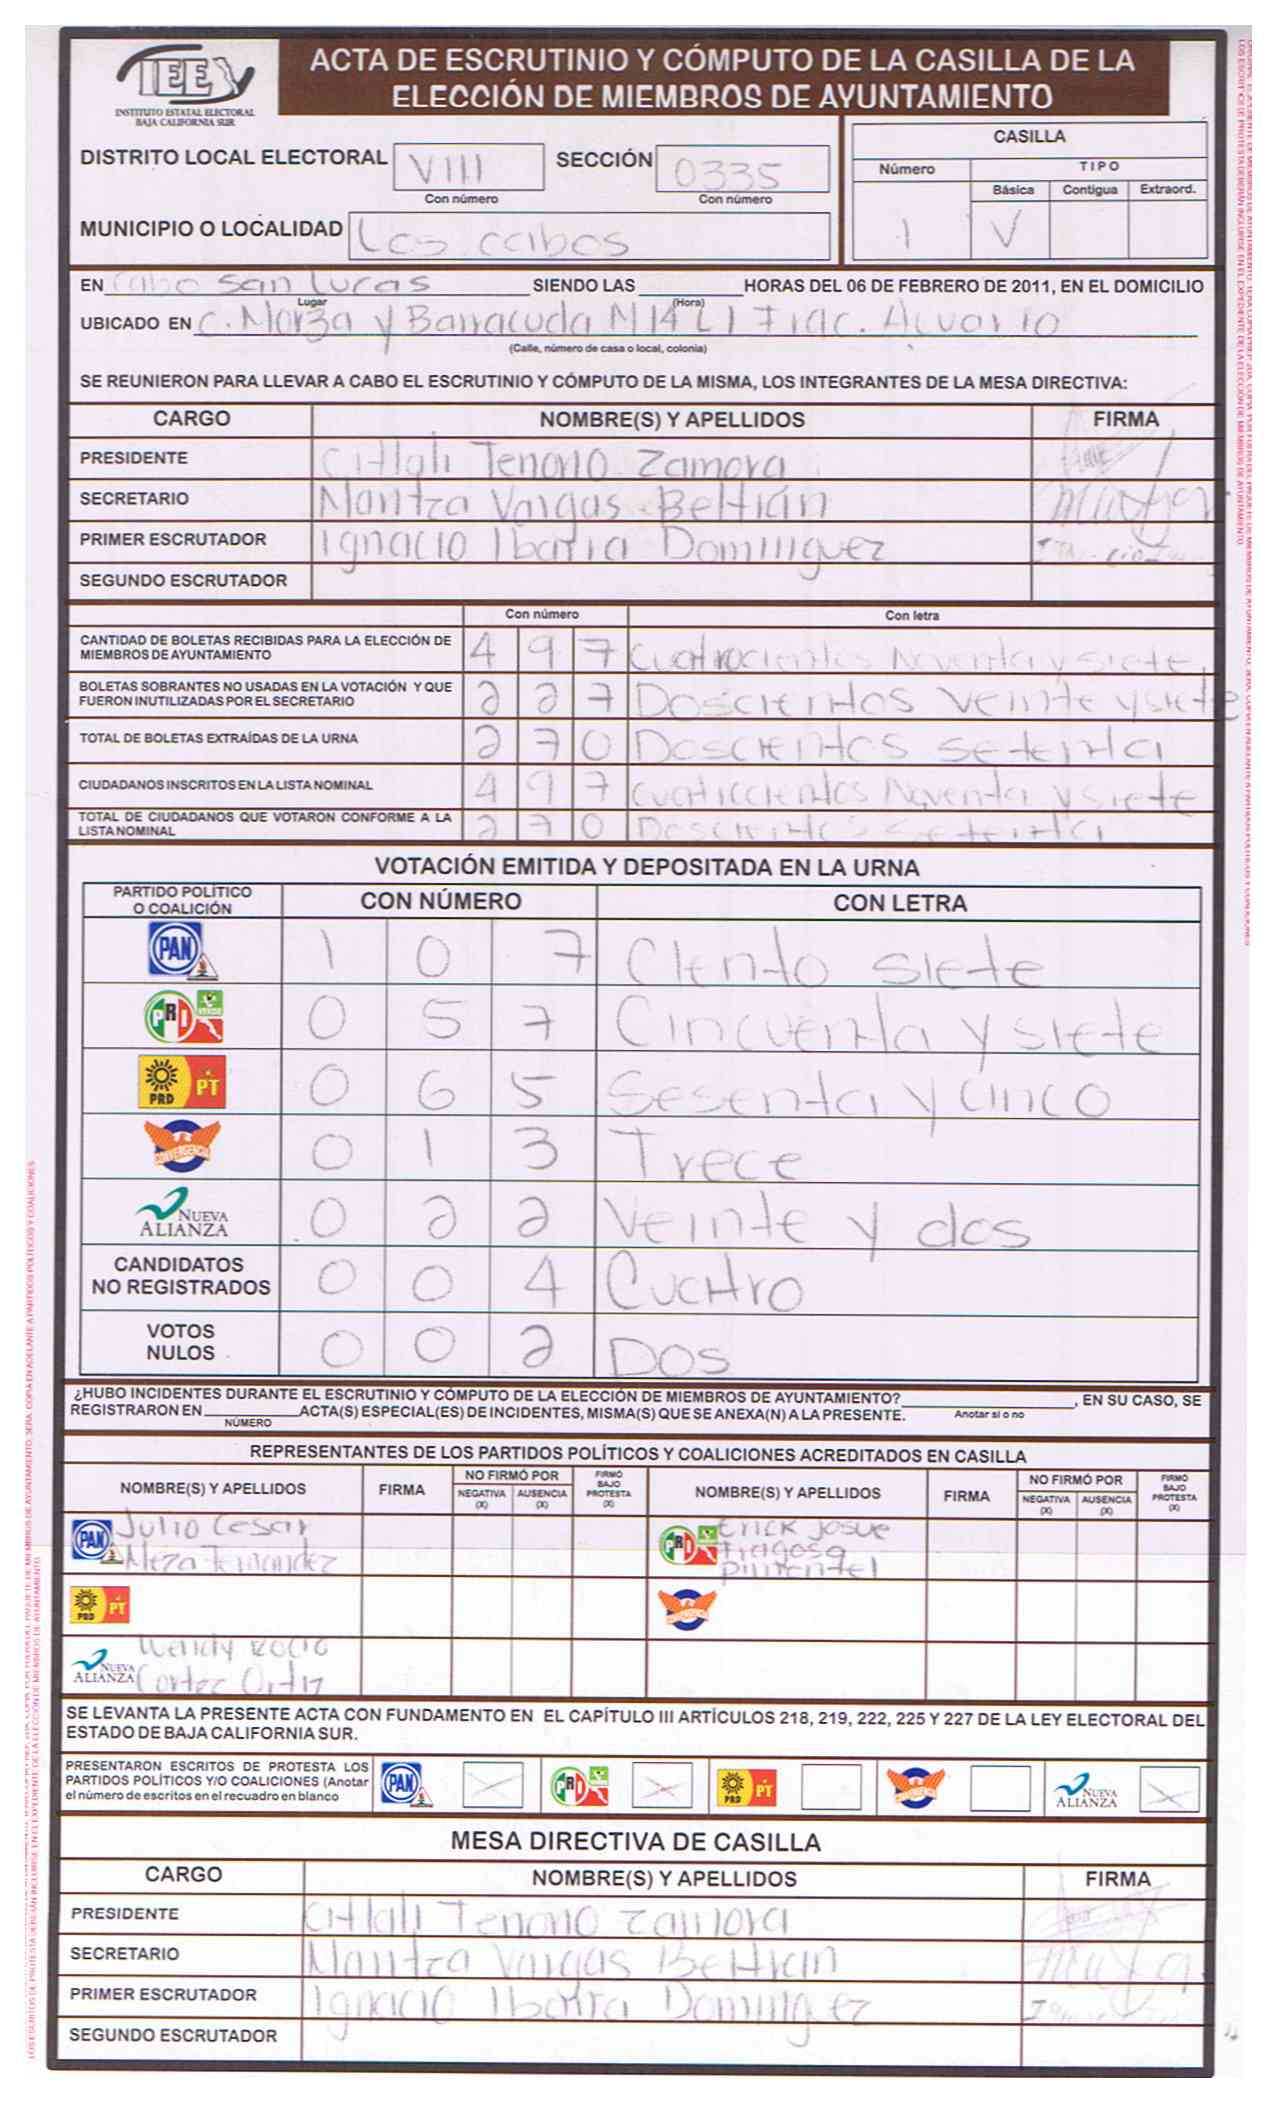 IEE
INSTITUTO ESTATAL ELECTORAL
BAJA CALIFORNIA SUR
ACTA DE ESCRUTINIO Y CÓMPUTO DE LA CASILLA DE LA
ELECCIÓN DE MIEMBROS DE AYUNTAMIENTO
DISTRITO LOCAL ELECTORAL VIII SECCIÓN 0335
Con número Con número
MUNICIPIO O LOCALIDAD Los cabos
CASILLA
Número TIPO
Básica Contigua Extraord.
1 V
EN Cabo San Lucas SIENDO LAS HORAS DEL 06 DE FEBRERO DE 2011, EN EL DOMICILIO
Lugar (Hora)
UBICADO EN C. Morza y Barracuda M14 L1 Frac. Acuario
(Calle, número de casa o local, colonia)
SE REUNIERON PARA LLEVAR A CABO EL ESCRUTINIO Y CÓMPUTO DE LA MISMA, LOS INTEGRANTES DE LA MESA DIRECTIVA:
CARGO NOMBRE(S) Y APELLIDOS FIRMA
PRESIDENTE Citlali Tenorio Zamora
SECRETARIO Maritza Vargas Beltrán
PRIMER ESCRUTADOR Ignacio Ibarra Dominguez
SEGUNDO ESCRUTADOR
Con número Con letra
CANTIDAD DE BOLETAS RECIBIDAS PARA LA ELECCIÓN DE
MIEMBROS DE AYUNTAMIENTO 4 9 7 Cuatrocientos Noventa y siete
BOLETAS SOBRANTES NO USADAS EN LA VOTACIÓN Y QUE
FUERON INUTILIZADAS POR EL SECRETARIO 2 2 7 Doscientos Veinte y siete
TOTAL DE BOLETAS EXTRAÍDAS DE LA URNA 2 7 0 Doscientos setenta
CIUDADANOS INSCRITOS EN LA LISTA NOMINAL 4 9 7 Cuatrocientos Noventa y siete
TOTAL DE CIUDADANOS QUE VOTARON CONFORME A LA
LISTA NOMINAL 2 7 0 Doscientos setenta
VOTACIÓN EMITIDA Y DEPOSITADA EN LA URNA
PARTIDO POLÍTICO
O COALICIÓN CON NÚMERO CON LETRA
PAN 1 0 7 Ciento siete
PRI VERDE 0 5 7 Cincuenta y siete
PRD PT 0 6 5 Sesenta y cinco
CONVERGENCIA 0 1 3 Trece
NUEVA ALIANZA 0 2 2 Veinte y dos
CANDIDATOS
NO REGISTRADOS 0 0 4 Cuatro
VOTOS
NULOS 0 0 2 Dos
¿HUBO INCIDENTES DURANTE EL ESCRUTINIO Y CÓMPUTO DE LA ELECCIÓN DE MIEMBROS DE AYUNTAMIENTO? , EN SU CASO, SE
REGISTRARON EN ACTA(S) ESPECIAL(ES) DE INCIDENTES, MISMA(S) QUE SE ANEXA(N) A LA PRESENTE. Anotar si o no
NÚMERO
REPRESENTANTES DE LOS PARTIDOS POLÍTICOS Y COALICIONES ACREDITADOS EN CASILLA
NOMBRE(S) Y APELLIDOS FIRMA NO FIRMÓ POR NEGATIVA (X) AUSENCIA (X) FIRMÓ BAJO PROTESTA (X) NOMBRE(S) Y APELLIDOS FIRMA NO FIRMÓ POR NEGATIVA (X) AUSENCIA (X) FIRMÓ BAJO PROTESTA (X)
PAN Julio Cesar
Meza Fernandez
PRI Erick Josue
Fragosa
Pimentel
PRD PT
NUEVA ALIANZA Wendy Rocio
Cortez Ortiz
SE LEVANTA LA PRESENTE ACTA CON FUNDAMENTO EN EL CAPÍTULO III ARTÍCULOS 218, 219, 222, 225 Y 227 DE LA LEY ELECTORAL DEL
ESTADO DE BAJA CALIFORNIA SUR.
PRESENTARON ESCRITOS DE PROTESTA LOS
PARTIDOS POLÍTICOS Y/O COALICIONES (Anotar
el número de escritos en el recuadro en blanco
PAN X PRI X PRD PT NUEVA ALIANZA X
MESA DIRECTIVA DE CASILLA
CARGO NOMBRE(S) Y APELLIDOS FIRMA
PRESIDENTE Citlali Tenorio Zamora
SECRETARIO Maritza Vargas Beltran
PRIMER ESCRUTADOR Ignacio Ibarra Dominguez
SEGUNDO ESCRUTADOR